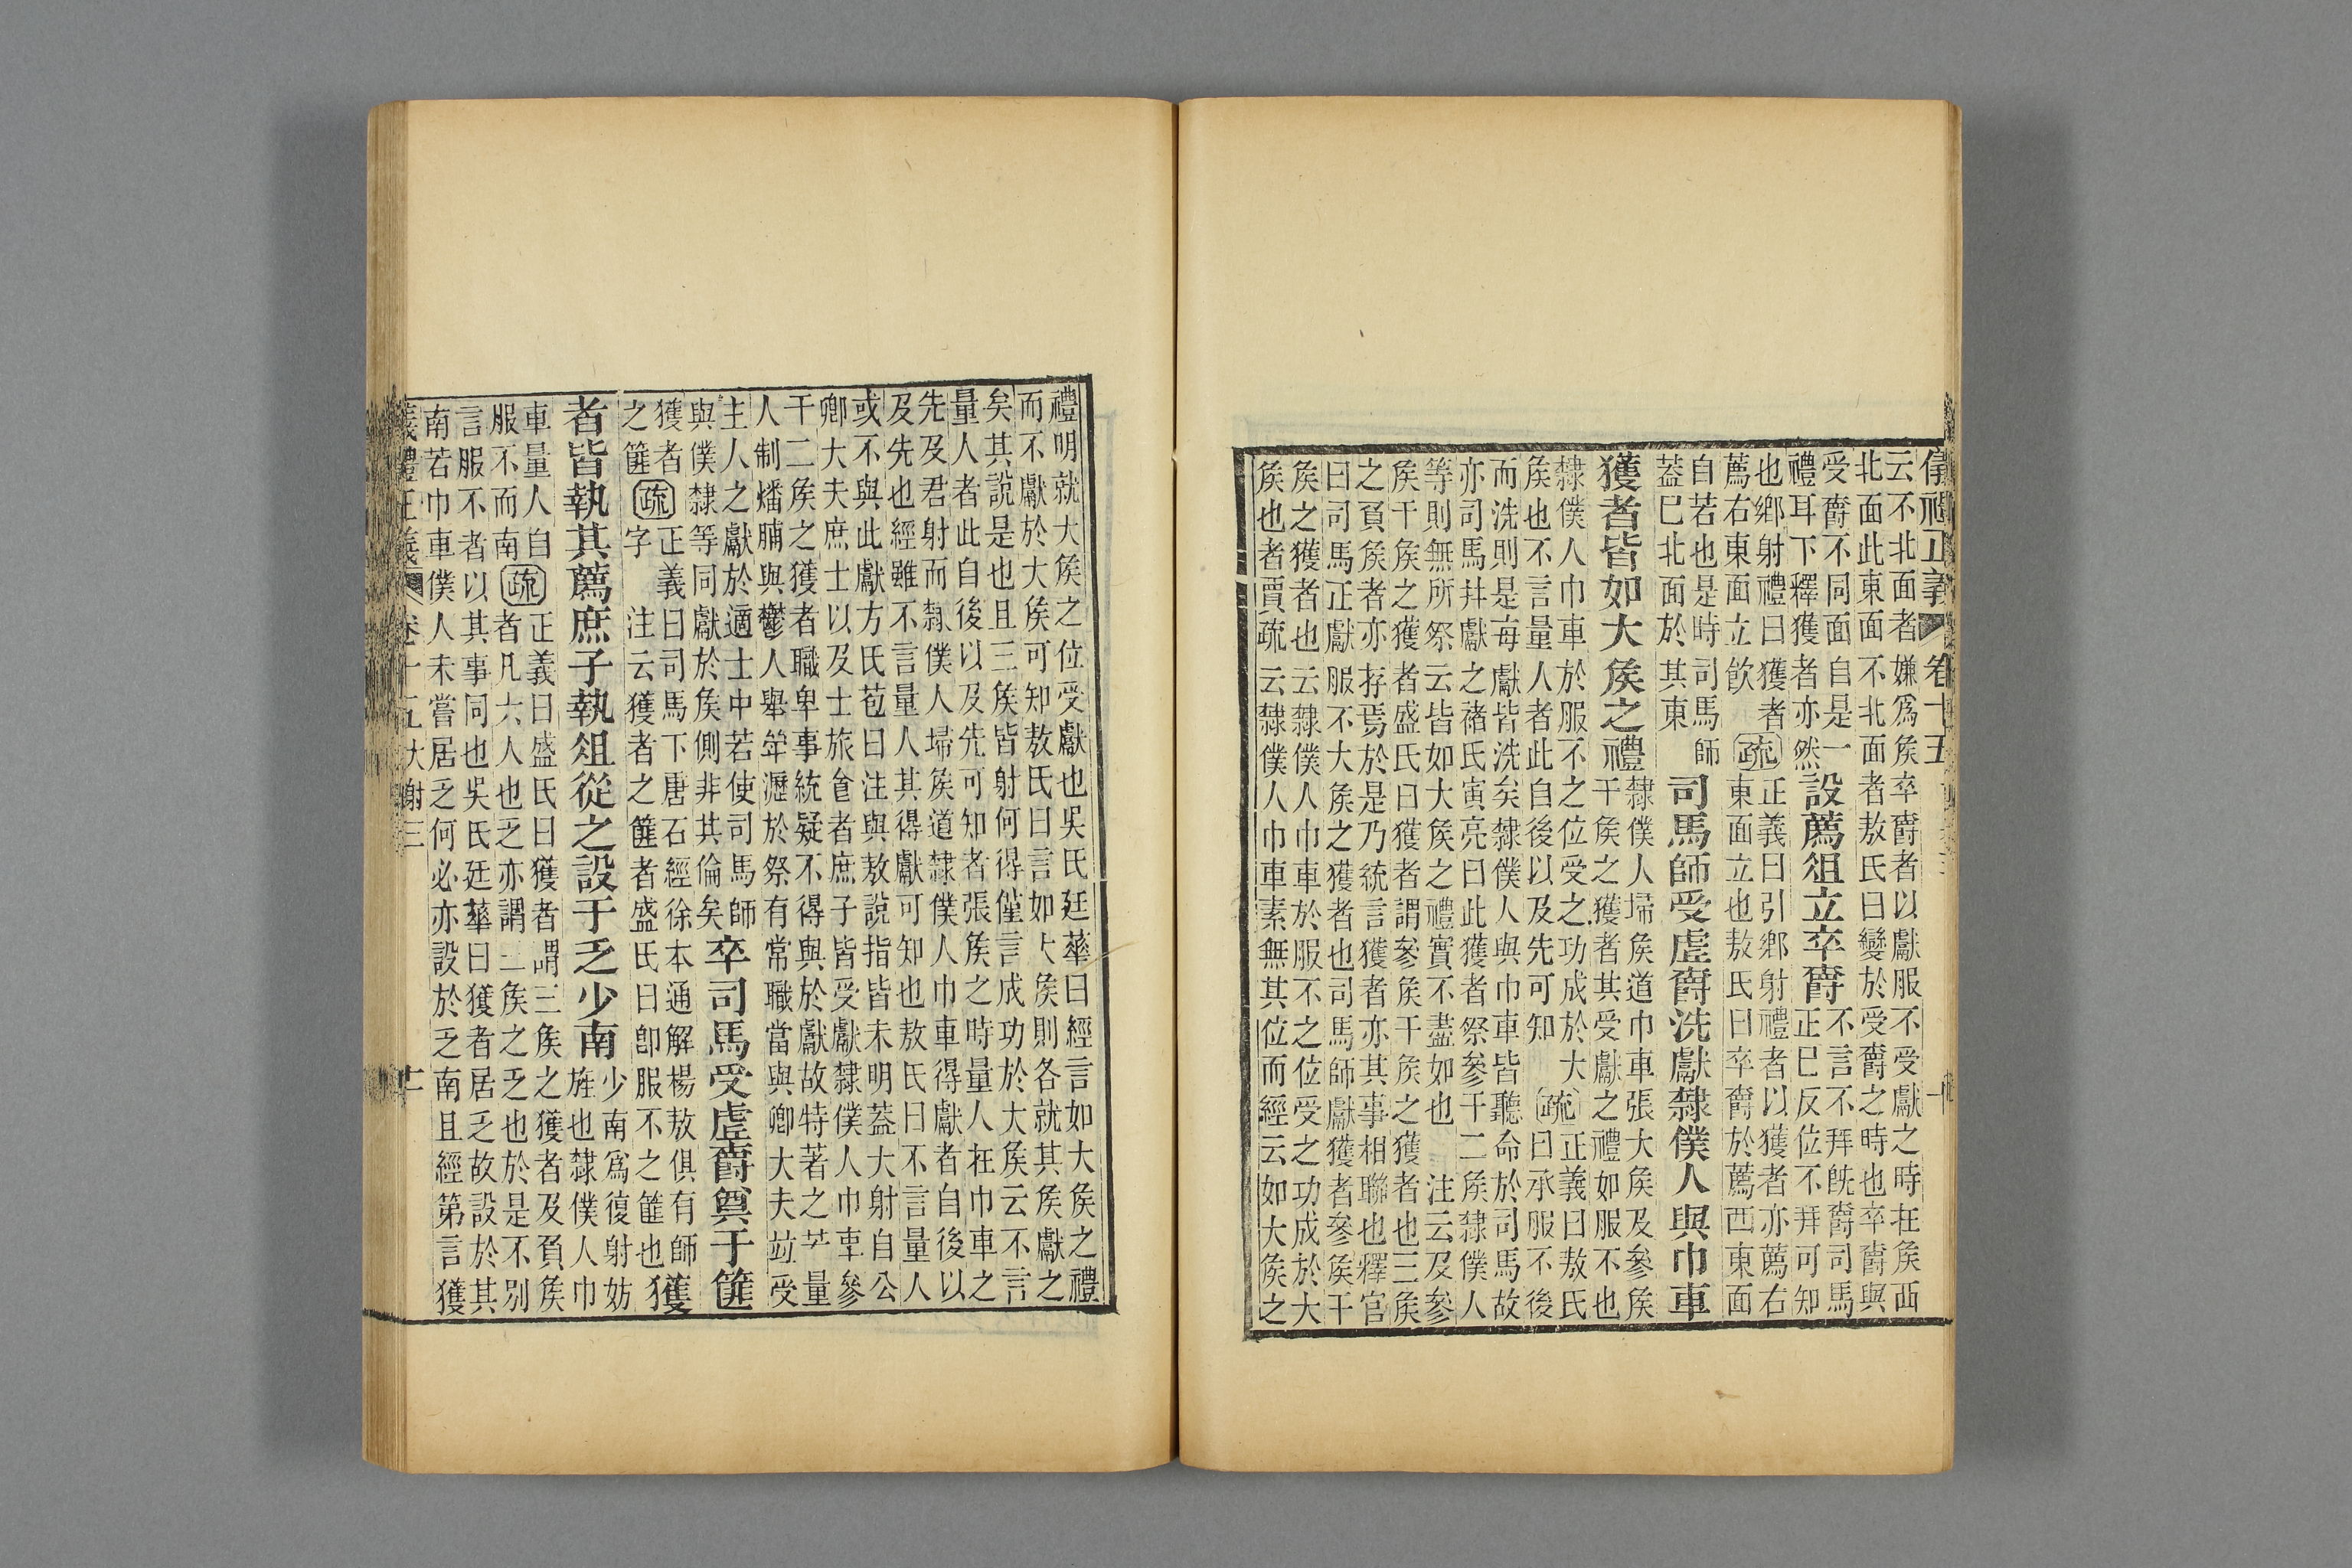 儀禮正義 卷十五
云不北面者嫌爲矦卒爵者以獻服不受獻之時在矦西
北面此東面不北面者敖氏曰變於受爵之時也卒爵與
受爵不同面自是一
禮耳下釋獲者亦然
設薦俎立卒爵
不言不拜旣爵司馬
正已反位不拜可知
也鄉射禮曰獲者
薦右東面立飲
疏
正義曰引鄉射禮者以獲者亦薦右
東面立也敖氏曰卒爵於薦西東面
自若也是時司馬師
蓋已北面於其東
司馬師受虛爵洗獻隸僕人與巾車
獲者皆如大矦之禮
隸僕人埽矦道巾車張大矦及參矦
干矦之獲者其受獻之禮如服不也
隸僕人巾車於服不之位受之功成於大
矦也不言量人者此自後以及先可知
疏
正義曰敖氏
曰承服不後
而洗則是每獻皆洗矣隸僕人與巾車皆聽命於司馬故
亦司馬幷獻之禇氏寅亮曰此獲者祭參干二矦隸僕人
等則無所祭云皆如大矦之禮實不盡如也 注云及參
矦干矦之獲者盛氏曰獲者謂參矦干矦之獲者也三矦
之負矦者亦存焉於是乃統言獲者亦其事相聯也釋官
曰司馬正獻服不大矦之獲者也司馬師獻獲者參矦干
矦之獲者也云隸僕人巾車於服不之位受之功成於大
矦也者賈疏云隸僕人巾車素無其位而經云如大矦之
禮明就大矦之位受獻也吳氏廷華曰經言如大矦之禮
而不獻於大矦可知敖氏曰言如大矦則各就其矦獻之
矣其說是也且三矦皆射何得僅言成功於大矦云不言
量人者此自後以及先可知者張矦之時量人在巾車之
先及君射而隸僕人埽矦道隸僕人巾車得獻者自後以
及先也經雖不言量人其得獻可知也敖氏曰不言量人
或不與此獻方氏苞曰注與敖說指皆未明蓋大射自公
卿大夫庶士以及士旅食者庶子皆受獻隸僕人巾車參
干二矦之獲者職卑事統疑不得與於獻故特著之若量
人制燔脯與鬱人舉斝瀝於祭有常職當與卿大夫竝受
主人之獻於適士中若使司馬師
與僕隸等同獻於矦側非其倫矣
卒司馬受虛爵奠于篚
獲者
之篚
疏
正義曰司馬下唐石經徐本通解楊敖俱有師
字 注云獲者之篚者盛氏曰卽服不之篚也
獲
者皆執其薦庶子執俎從之設于乏少南
少南爲復射妨
旌也隸僕人巾
車量人自
服不而南
疏
正義曰盛氏曰獲者謂三矦之獲者及負矦
者凡六人也乏亦謂三矦之乏也於是不別
言服不者以其事同也吳氏廷華曰獲者居乏故設於其
南若巾車僕人未嘗居乏何必亦設於乏南且經第言獲
義禮正義 卷十五大射三 十一